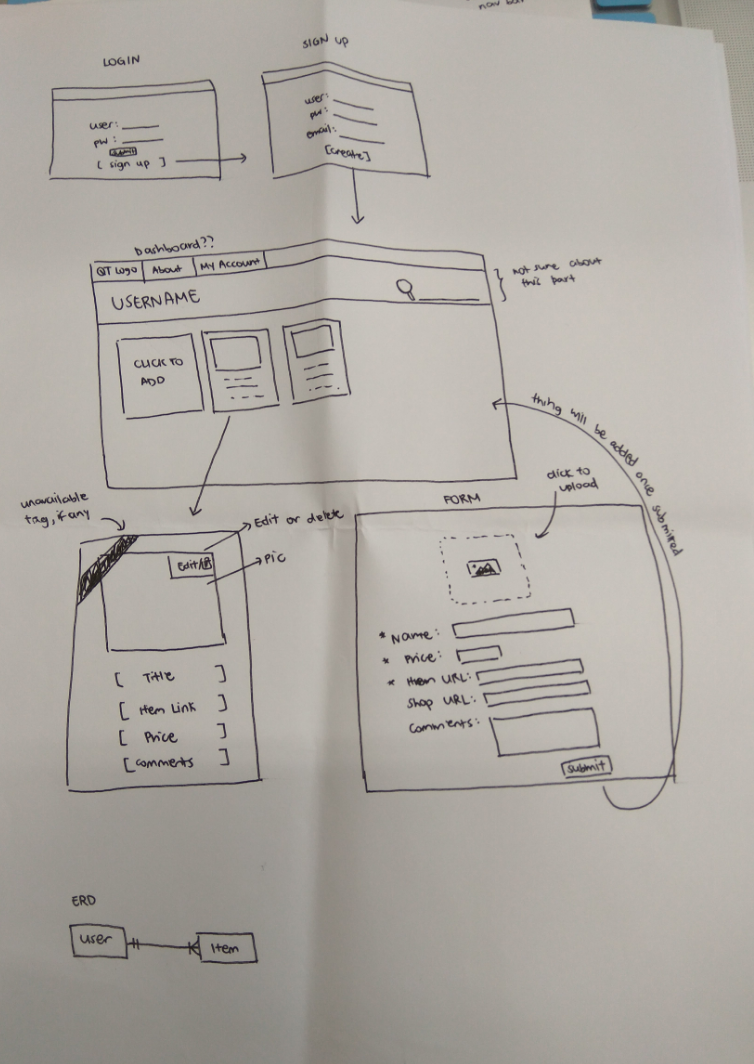 now bar
LOGIN
user:
pw:
submit
[ sign up ]
SIGN up
user:
pw:
email:
[create]
Dashboard??
QT Logo
About
My Account
USERNAME
not sure about
this part
CLICK TO
ADD
thing will be added once submitted
unavailable
tag, if any
Edit or delete
Edit/
Pic
[ Title ]
[ Item Link ]
[ Price ]
[comments ]
FORM
click to
upload
* Name:
* Price:
* Item URL:
Shop URL:
Comments:
submit
ERD
user
Item